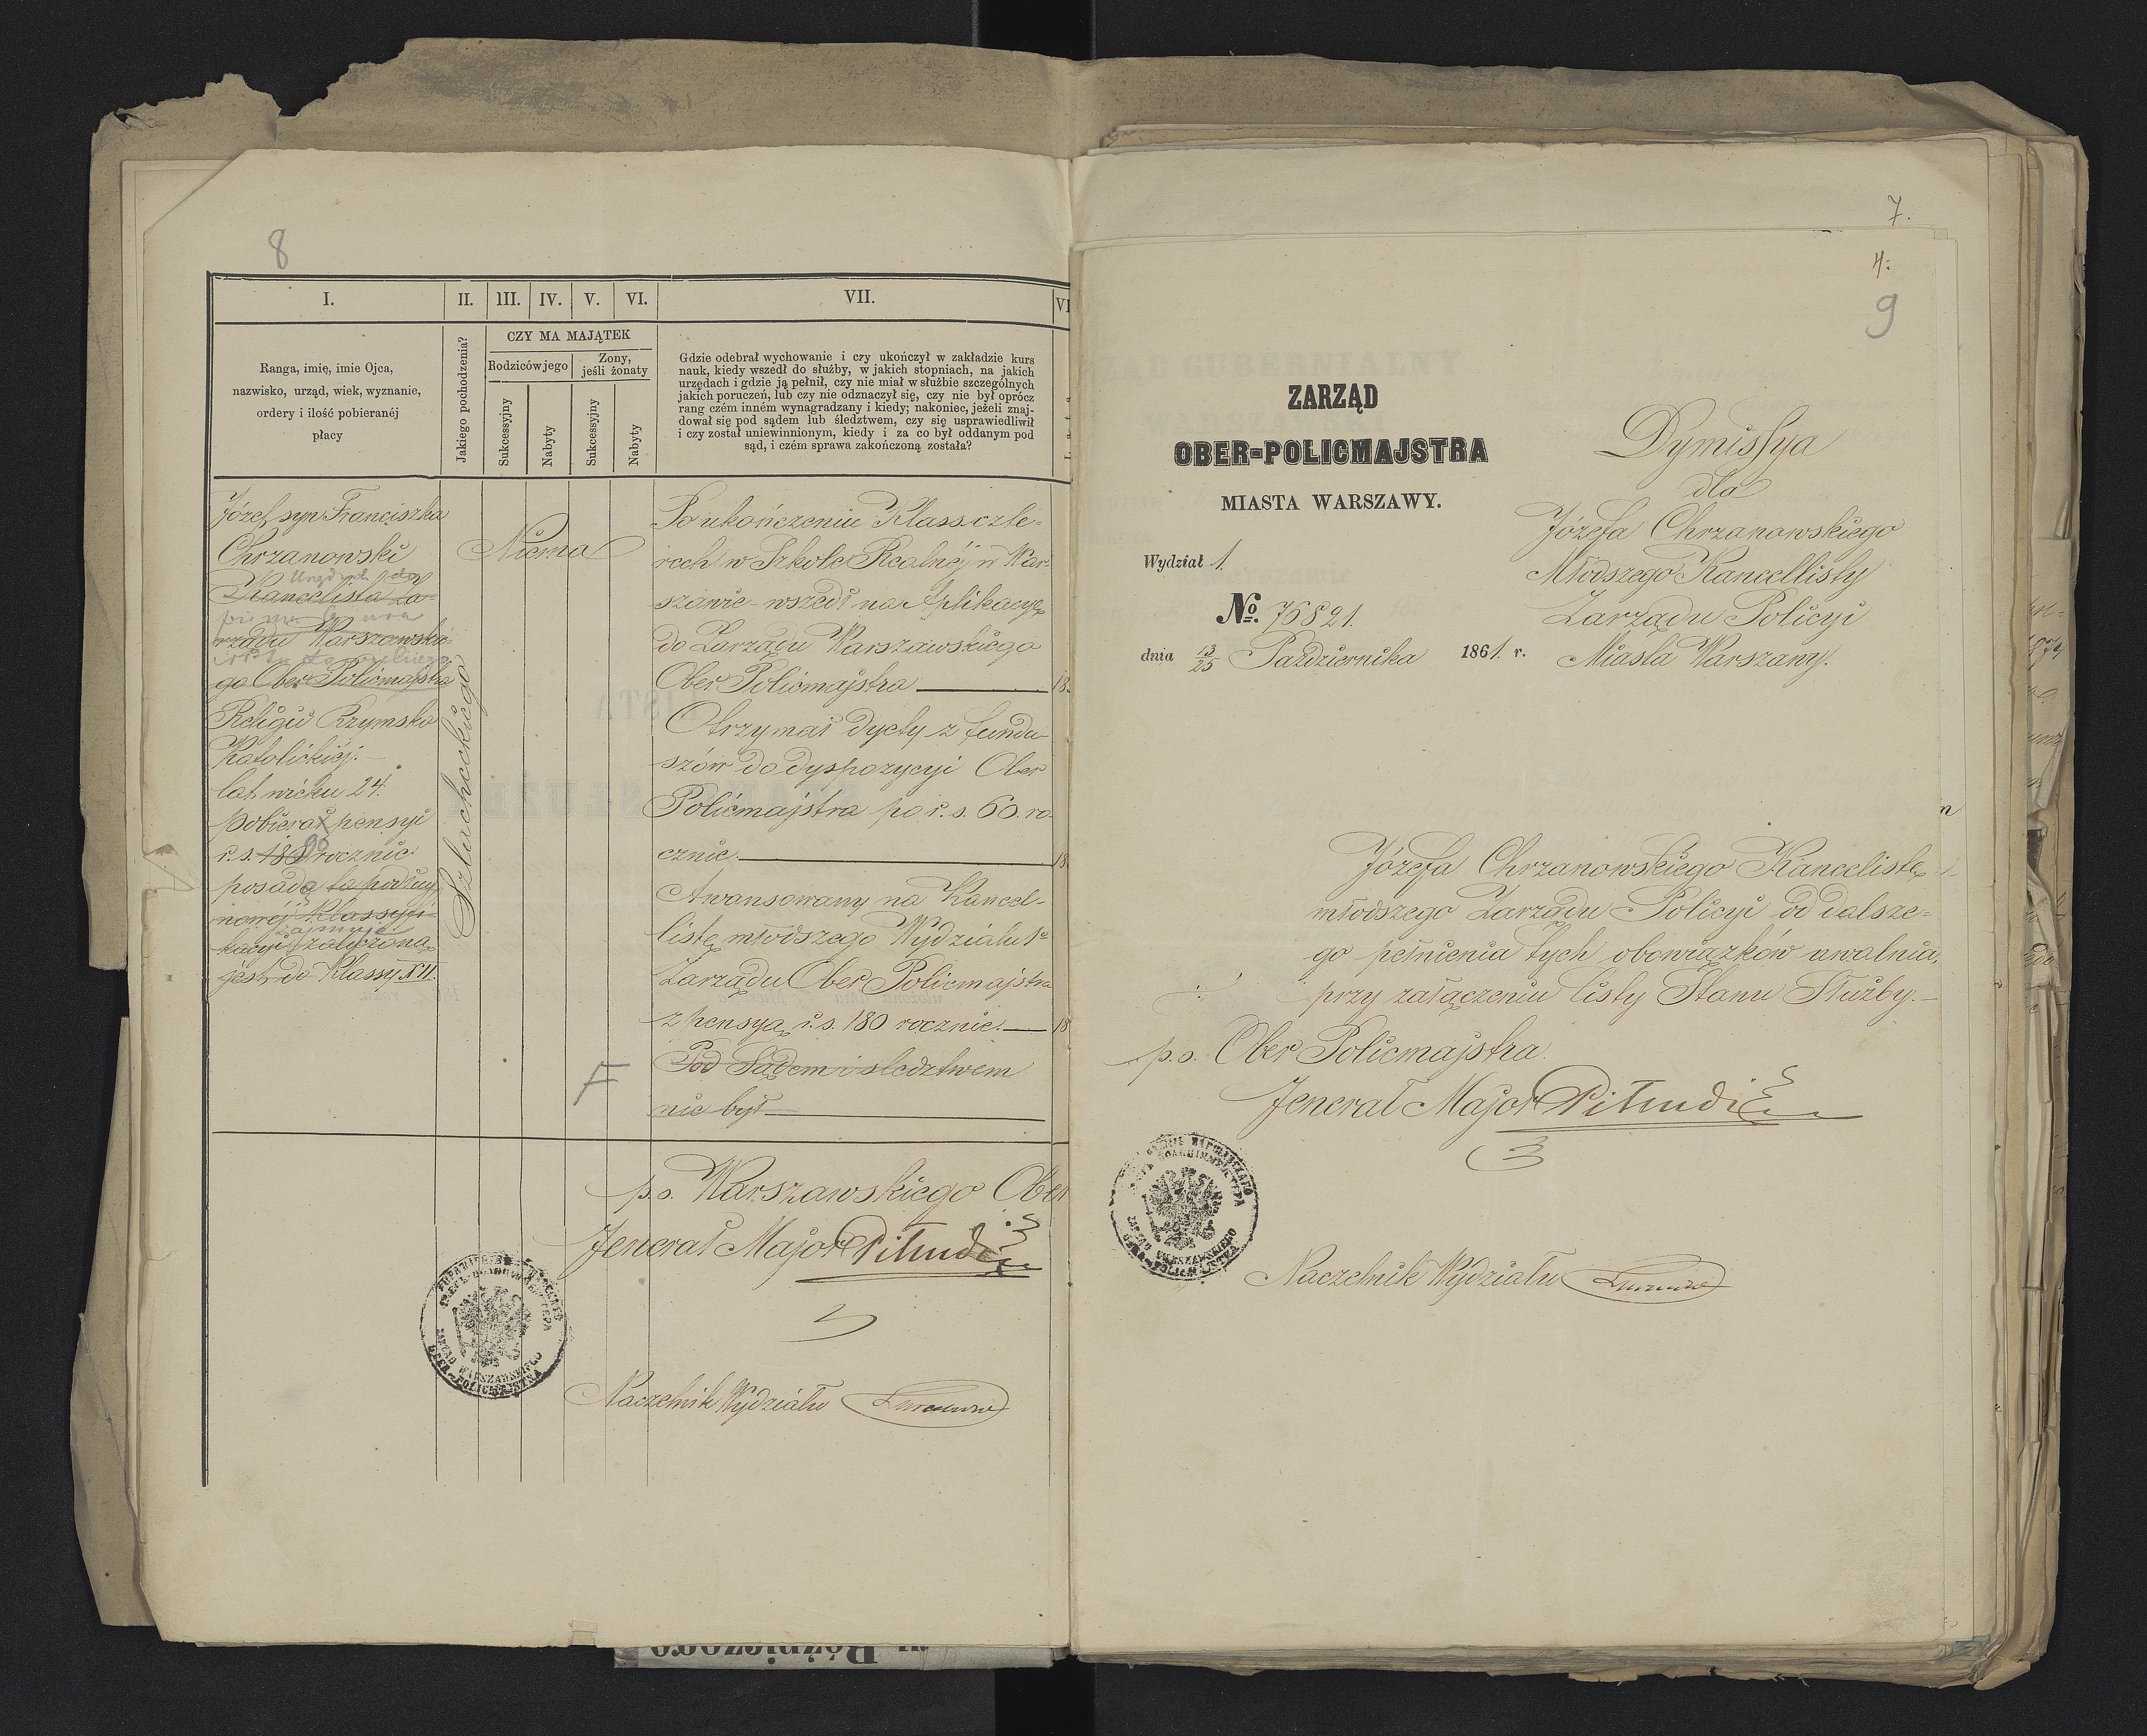 8
I. II. III. IV. V. VI. VII.
CZY MA MAJĄTEK
Ranga, imię, imie Ojca,
nazwisko, urząd, wiek, wyznanie,
ordery i ilość pobieranéj
płacy
Jakiego pochodzenia?
Rodziców jego
Żony,
jeśli żonaty
Sukcessyjny
Nabyty
Sukcessyjny
Nabyty
Gdzie odebrał wychowanie i czy ukończył w zakładzie kurs
nauk, kiedy wszedł do służby, w jakich stopniach, na jakich
urzędach i gdzie ją pełnił, czy nie miał w służbie szczególnych
jakich poruczeń, lub czy nie odznaczył się, czy nie był oprócz
rang czém inném wynagradzany i kiedy; nakoniec, jeżeli znaj-
dował się pod sądem lub śledztwem, czy się usprawiedliwił
i czy został uniewinnionym, kiedy i za co był oddanym pod
sąd, i czém sprawa zakończoną została?
Józef syn Franciszka
Chrzanowski
Kancelista Za-
rządu Warszawskie-
go Ober Policmajstra
Religii Rzymsko
Katolickiéj.
lat wieku 24.
pobierał pensyi
r. s. 180 90 rocznie
posada ta podług
nowéj klassyfi-
zajmuje
kacyi zaliczoną
jest do Klassy XII.
Szlacheckiego
Niema
Po ukończeniu Klass czte-
rech w Szkole Realnéj w War-
szawie wszedł na Aplikacyę
do Zarządu Warszawskiego
Ober Policmajstra
Otrzymał dyety z fundu-
szów do dyspozycyi Ober
Policmajstra po r. s. 60. ro-
cznie.
Awansowany na Kancel-
listę młodszego Wydziału 1o
Zarządu Ober Policmajstra
z pensyą r. s. 180 rocznie.
Pod Sądem i sledztwem
nie był
p. o. Warszawskiego Ober
Jenerał Major
Naczelnik Wydziału
ZARZĄD WARSZAWSKIEGO
OBER-POLICMAJSTRA
7.
4.
9
ZARZĄD
OBER-POLICMAJSTRA
MIASTA WARSZAWY.
Wydział 1.
No. 76821.
dnia 13/25 Października 1861. r.
Dymissya
dla
Józefa Chrzanowskiego
Młodszego Kancellisty
Zarządu Policyi
Miasta Warszawy.
Józefa Chrzanowskiego Kancelistę
młodszego Zarządu Policyi od dalsze-
go pełnienia tych obowiązków uwalnia,
przy załączeniu listy Stanu Służby.
p. o. Ober Policmajstra
Jenerał Major
Naczelnik Wydziału
ZARZĄD WARSZAWSKIEGO
OBER-POLICMAJSTRA